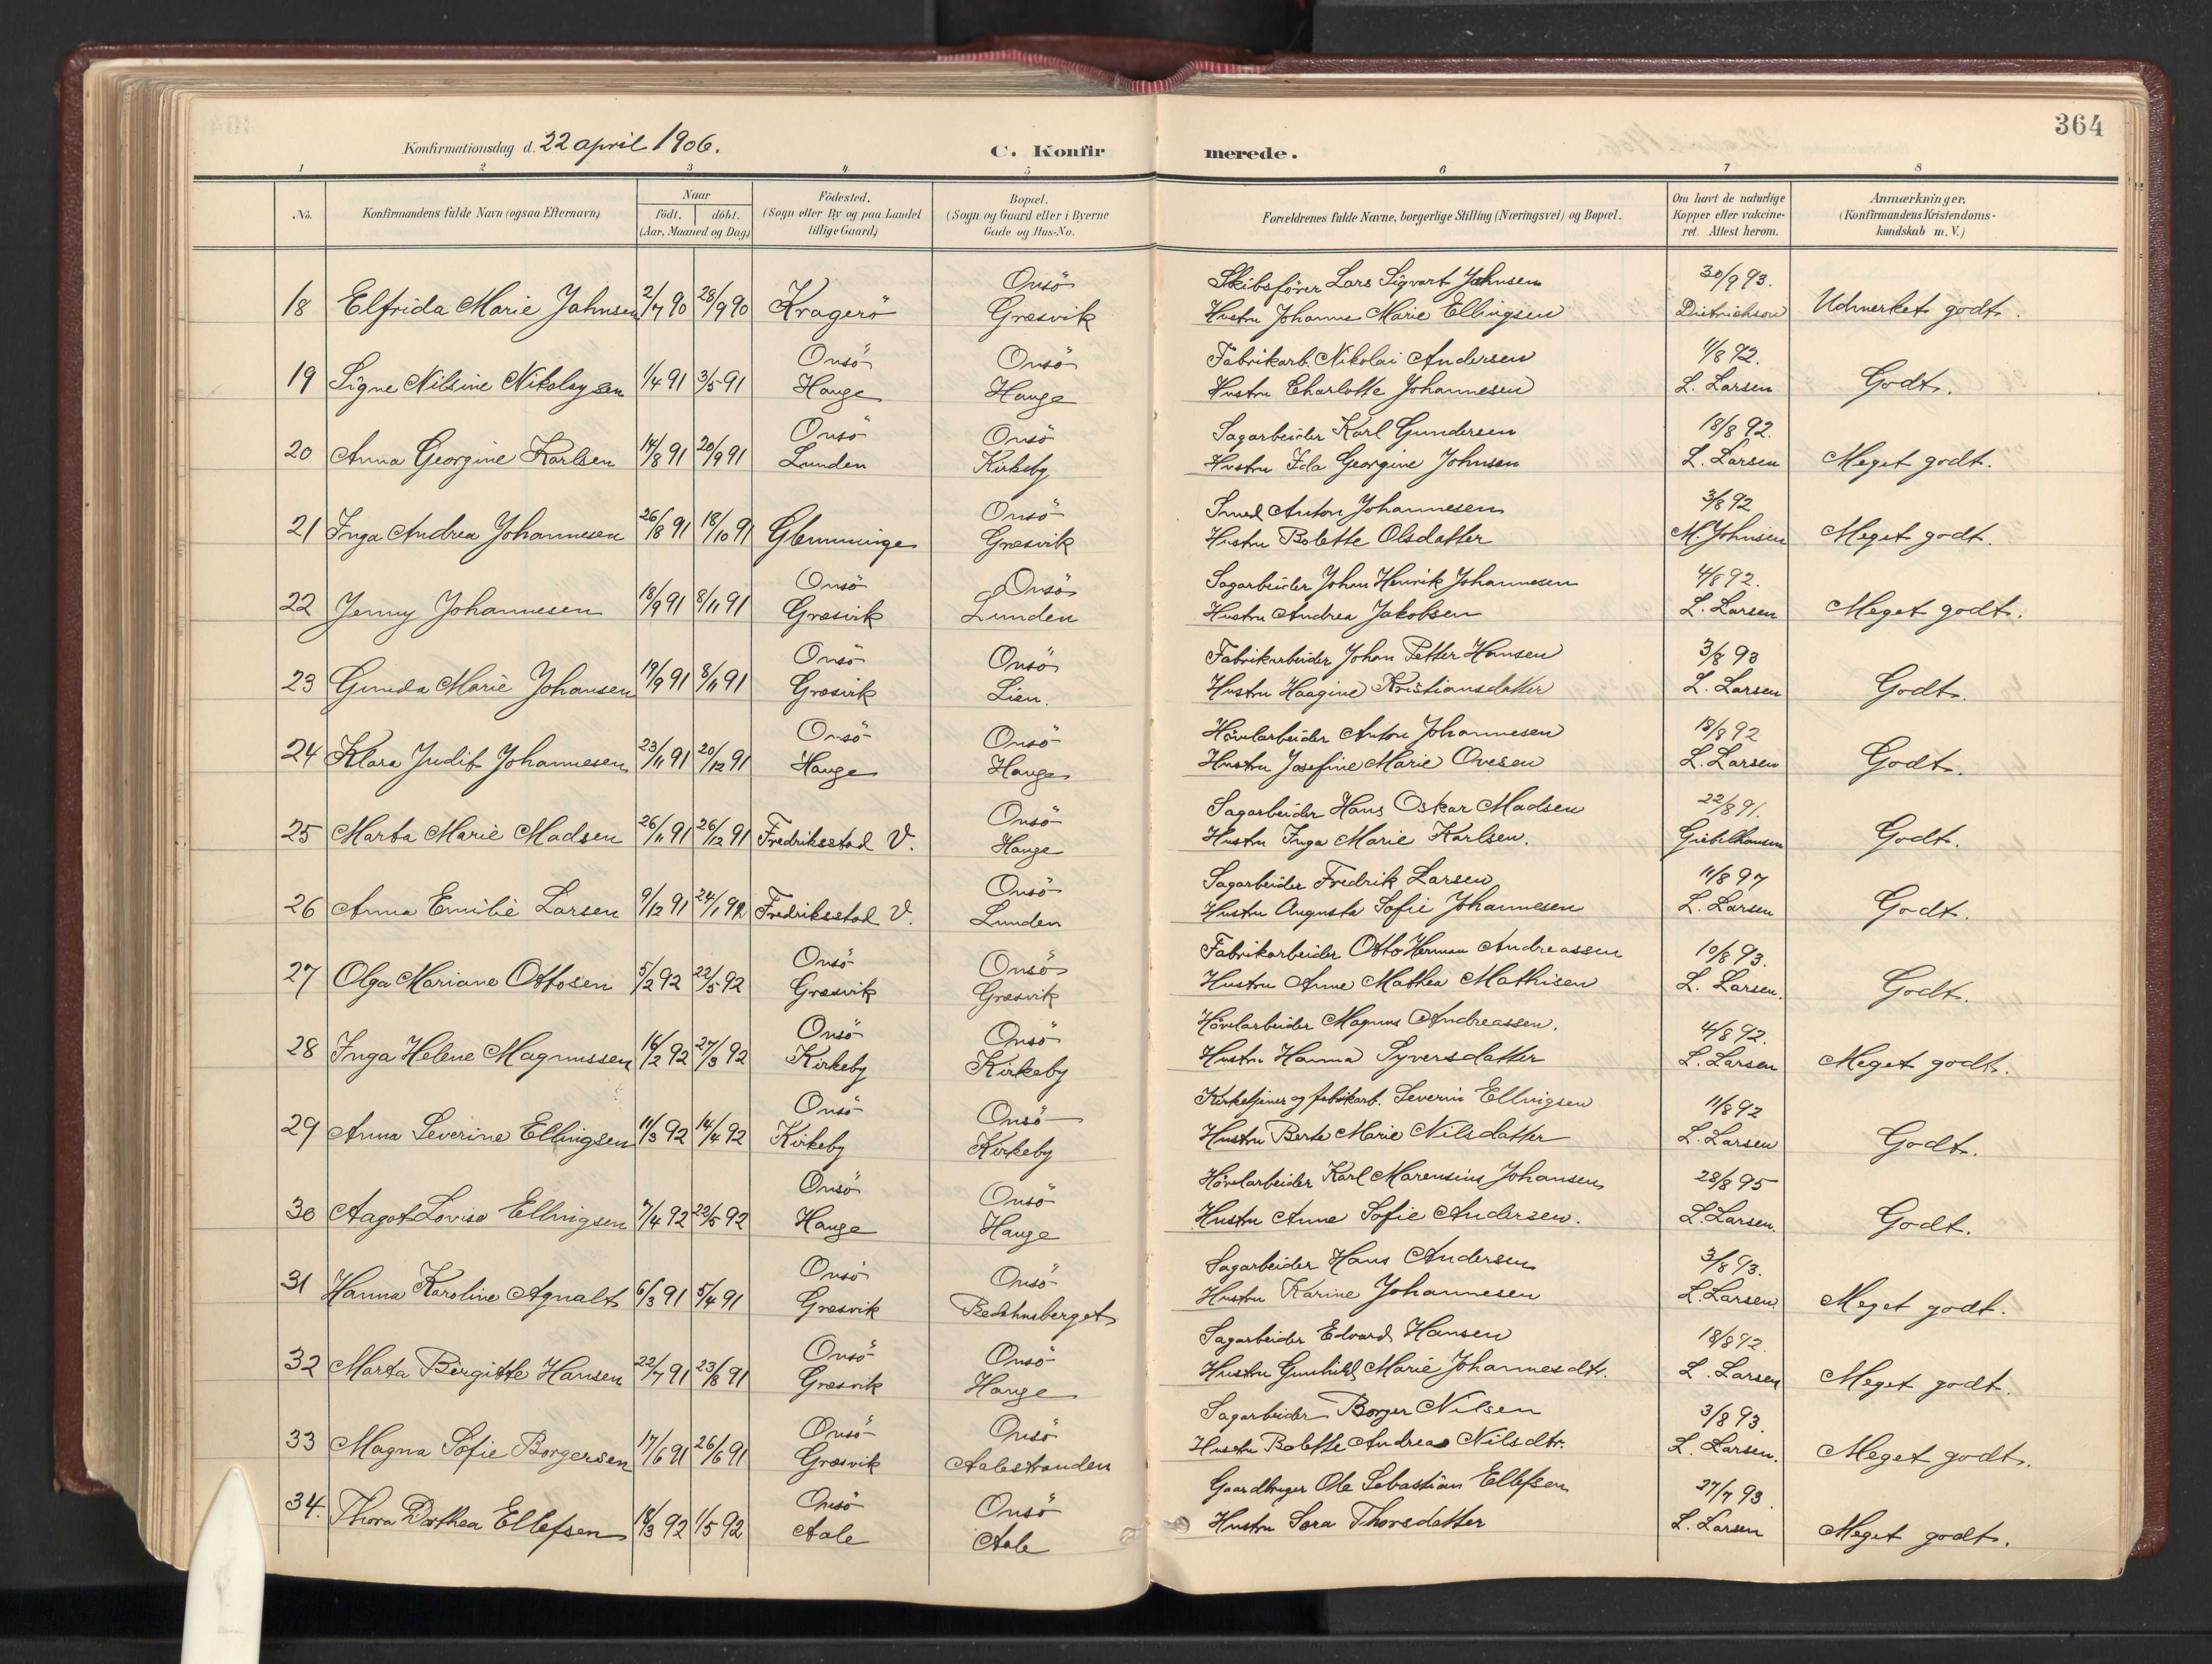 364
Konfirmationsdag d. 22 april 1906.
C. Konfirmerede.
1 2 3 4 5 6 7 8
No. Konfirmandens fulde Navn (ogsaa Efternavn) Naar født. døbt. (Aar, Maaned og Dag) Fødested. (Sogn eller By og paa Landet tillige Gaard) Bopæl. (Sogn og Gaard eller i Byerne Gade og Hus-No. Forældrenes fulde Navne, borgerlige Stilling (Næringsvei) og Bopæl. Om havt de naturlige Kopper eller vakcineret. Attest herom. Anmærkninger, (Konfirmandens Kristendomskundskab m. V.)
Onsö Skibsförer Lars Sigvart Jahnsen 30/9 93.
18 Elfrida Marie Jahnsen 2/7 90 28/9 90 Kragerö Græsvik Hustru Johanne Marie Ellingsen Dietrichson Udmerket godt.
Onsö Onsö Fabrikarb. Nikolai Andersen 11/8 92.
19 Signe Nilsine Nikolaysen 1/4 91 3/5 91 Hauge Hauge Hustru Charlotte Johannesen L. Larsen Godt.
Onsö Onsö Sagarbeider Karl Gundersen 18/8 92.
20 Anna Georgine Karlsen 14/8 91 20/9 91 Lunden Kirkeby Hustru Ida Georgine Johnsen L. Larsen Meget godt.
Onsö Smed Anton Johannesen 3/8 92
21 Inga Andrea Johannesen 26/8 91 18/10 91 Glemminge Græsvik Hustru Bolette Olsdatter M. Johnsen Meget godt.
Onsö Onsö Sagarbeider Johan Henrik Johannesen 4/8 92.
22 Jenny Johannesen 18/9 91 8/11 91 Græsvik Lunden Hustru Andrea Jakobsen L. Larsen Meget godt.
Onsö Onsö Fabrikarbeider Johan Petter Hansen 3/8 93
23 Gunda Marie Johansen 19/9 91 8/11 91 Græsvik Lien. Hustru Haagine Kristiansdatter L. Larsen Godt.
Onsö Onsö Hövelarbeider Anton Johannesen 18/8 92
24 Klara Judit Johannesen 23/11 91 20/12 91 Hauge Hauge Hustru Josefine Marie Ovesen L. Larsen Godt.
Onsö Sagarbeider Hans Oskar Madsen 22/8 91.
25 Marta Marie Madsen 26/11 91 26/12 91 Fredriksstad V. Hauge Hustru Inga Marie Karlsen. Giebelhausen Godt.
Onsö Sagarbeider Fredrik Larsen 11/8 97
26 Anna Emilie Larsen 9/12 91 24/1 92 Fredriksstad V. Lunden Hustru Augusta Sofie Johannesen L. Larsen Godt.
Onsö Onsö Fabrikarbeider Otto Herman Andreassen 10/8 93.
27 Olga Mariane Ottosen 5/2 92 22/5 92 Græsvik Græsvik Hustru Anne Mathea Mathisen L. Larsen. Godt.
Onsö Onsö Hövelarbeider Magnus Andreassen. 4/8 92.
28 Inga Helene Magnussen 16/2 92 27/3 92 Kirkeby Kirkeby Hustru Hanna Syversdatter L. Larsen Meget godt.
Onsö Onsö Kirketjener og fabrikarb. Severin Ellingsen 11/8 92
29 Anna Severine Ellingsen 11/3 92 14/4 92 Kirkeby Kirkeby Hustru Berte Marie Nilsdatter L. Larsen Godt.
Onsö Onsö Hövelarbeider Karl Marensius Johansen 28/8 95
30 Aagot Lovise Ellingsen 7/4 92 22/5 92 Hauge Hauge Hustru Anne Sofie Andersen. L. Larsen. Godt.
Onsö Onsö Sagarbeider Hans Andersen 3/8 93.
31 Hanna Karoline Agnalt 6/3 91 5/4 91 Græsvik Bedehusberget Hustru Karine Johannesen L. Larsen. Meget godt.
Onsö Onsö Sagarbeider Edvard Hansen 18/8 92.
32 Marta Birgitte Hansen 22/7 91 23/8 91 Græsvik Hauge Hustru Gunhild Marie Johannesdtr. L. Larsen Meget godt.
Onsö Onsö Sagarbeider Borger Nilsen 3/8 93.
33 Magna Sofie Borgersen 17/6 91 26/6 91 Græsvik Aalestranden Hustru Bolette Andrea Nilsdtr. L. Larsen. Meget godt.
Onsö Onsö Gaardbruger Ole Sebastian Ellefsen 27/7 93.
34. Thora Dorthea Ellefsen 18/3 92 1/5 92 Aale Aale Hustru Sara Thorsdatter L. Larsen Meget godt.